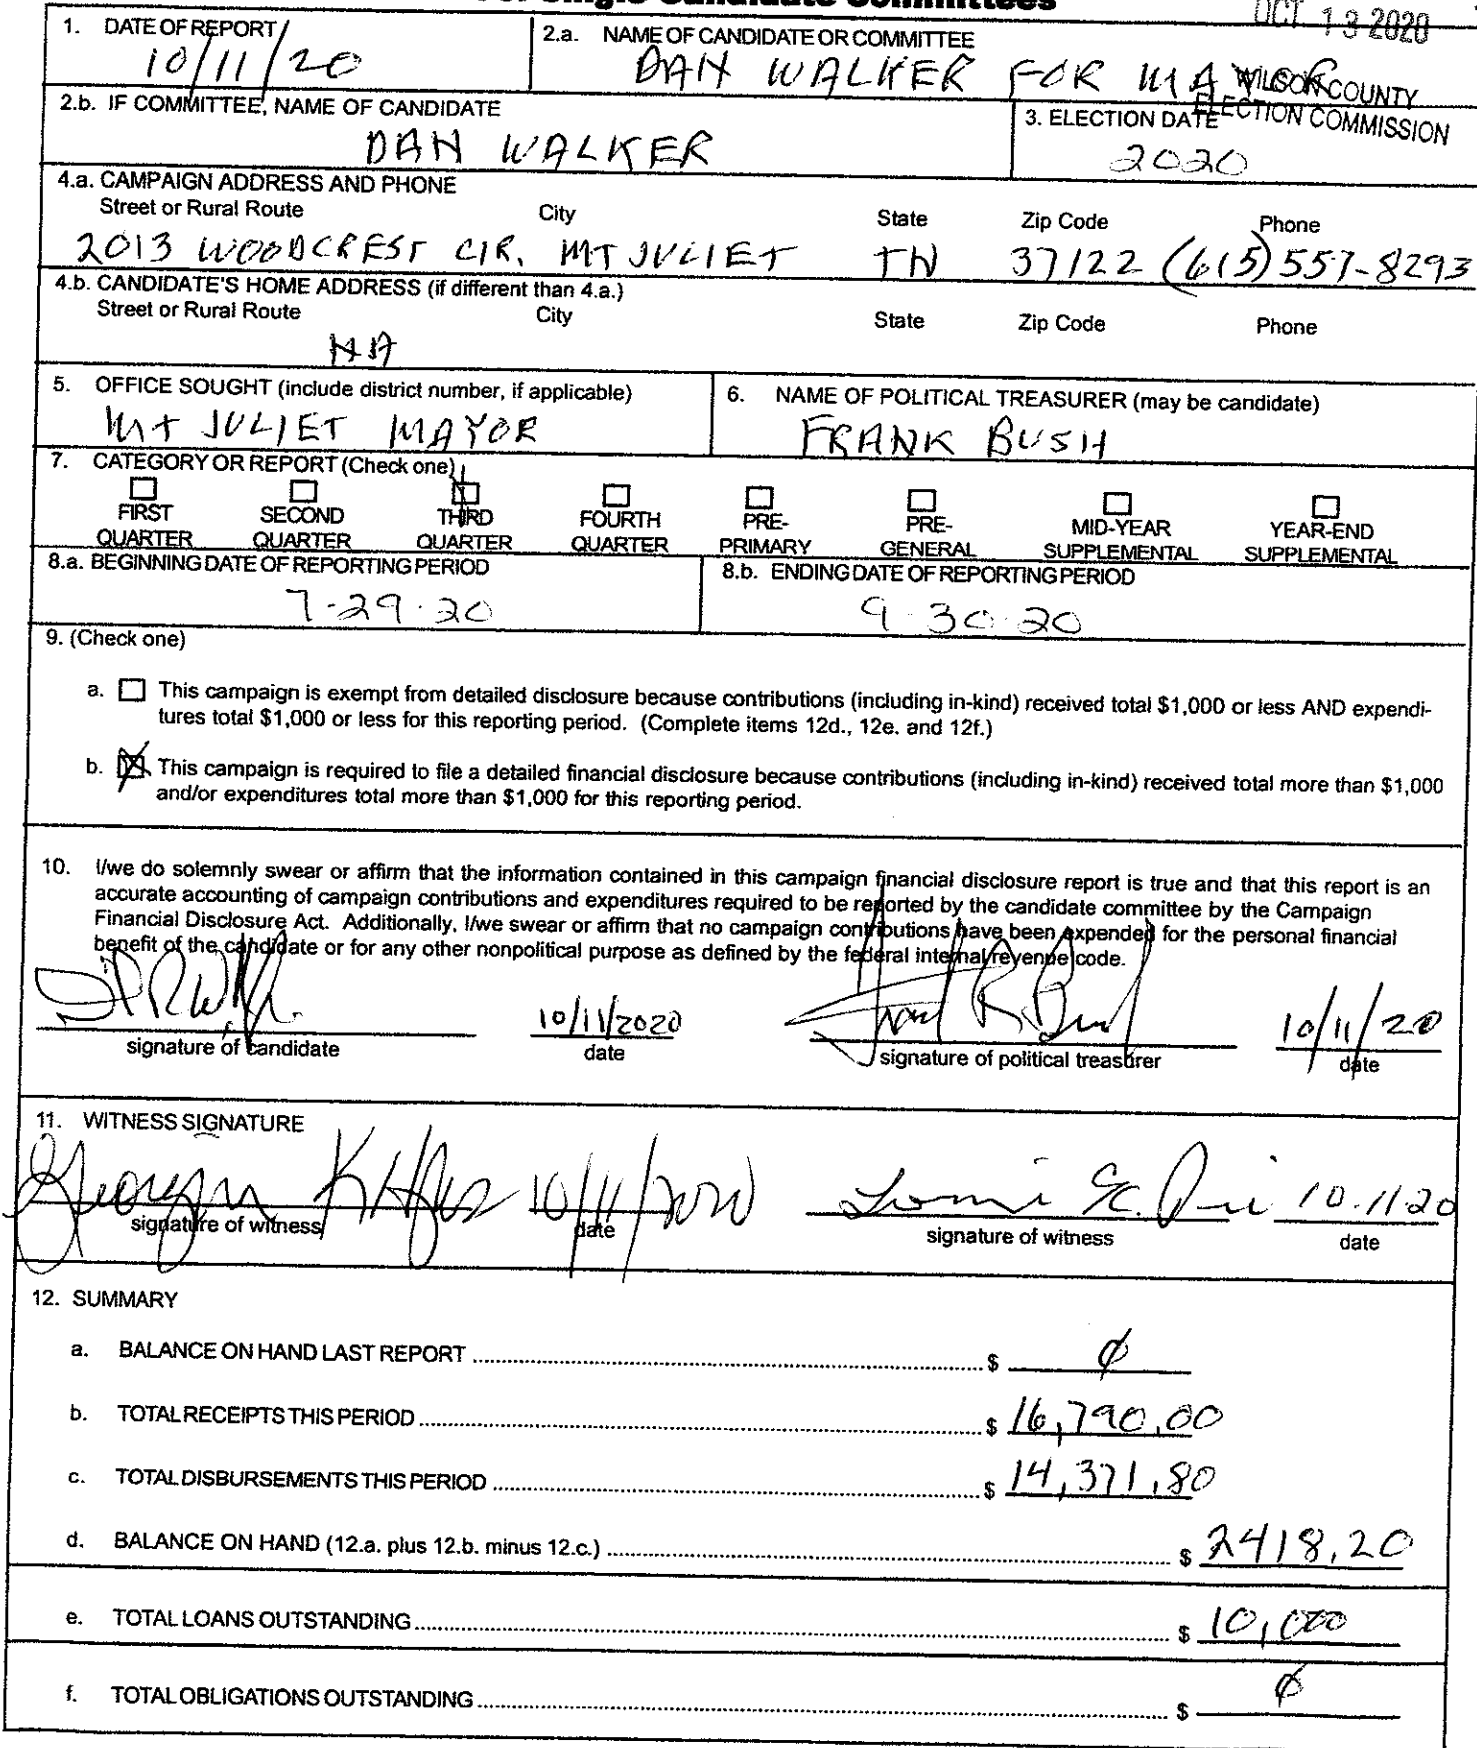 For Single Candidate Committees
OCT 13 2020
WILSON COUNTY
ELECTION COMMISSION
1. DATE OF REPORT
10/11/20
2.a. NAME OF CANDIDATE OR COMMITTEE
DAN WALKER FOR MAYOR
2.b. IF COMMITTEE, NAME OF CANDIDATE
DAN WALKER
3. ELECTION DATE
2020
4.a. CAMPAIGN ADDRESS AND PHONE
Street or Rural Route City State Zip Code Phone
2013 WOODCREST CIR. MT JULIET TN 37122 (615) 557-8293
4.b. CANDIDATE'S HOME ADDRESS (if different than 4.a.)
Street or Rural Route City State Zip Code Phone
NA
5. OFFICE SOUGHT (include district number, if applicable)
MT JULIET MAYOR
6. NAME OF POLITICAL TREASURER (may be candidate)
FRANK BUSH
7. CATEGORY OR REPORT (Check one)
FIRST QUARTER
SECOND QUARTER
THIRD QUARTER
FOURTH QUARTER
PRE-PRIMARY
PRE-GENERAL
MID-YEAR SUPPLEMENTAL
YEAR-END SUPPLEMENTAL
8.a. BEGINNING DATE OF REPORTING PERIOD
7-29-20
8.b. ENDING DATE OF REPORTING PERIOD
9-30-20
9. (Check one)
a. This campaign is exempt from detailed disclosure because contributions (including in-kind) received total $1,000 or less AND expendi-
tures total $1,000 or less for this reporting period. (Complete items 12d., 12e. and 12f.)
b. This campaign is required to file a detailed financial disclosure because contributions (including in-kind) received total more than $1,000
and/or expenditures total more than $1,000 for this reporting period.
10. I/we do solemnly swear or affirm that the information contained in this campaign financial disclosure report is true and that this report is an
accurate accounting of campaign contributions and expenditures required to be reported by the candidate committee by the Campaign
Financial Disclosure Act. Additionally, I/we swear or affirm that no campaign contributions have been expended for the personal financial
benefit of the candidate or for any other nonpolitical purpose as defined by the federal internal revenue code.
10/11/2020 10/11/20
signature of candidate date signature of political treasurer date
11. WITNESS SIGNATURE
10/11/2020 10.11.20
signature of witness date signature of witness date
12. SUMMARY
a. BALANCE ON HAND LAST REPORT $ Ø
b. TOTAL RECEIPTS THIS PERIOD $ 16,790.00
c. TOTAL DISBURSEMENTS THIS PERIOD $ 14,371.80
d. BALANCE ON HAND (12.a. plus 12.b. minus 12.c.) $ 2418.20
e. TOTAL LOANS OUTSTANDING $ 10,000
f. TOTAL OBLIGATIONS OUTSTANDING $ Ø